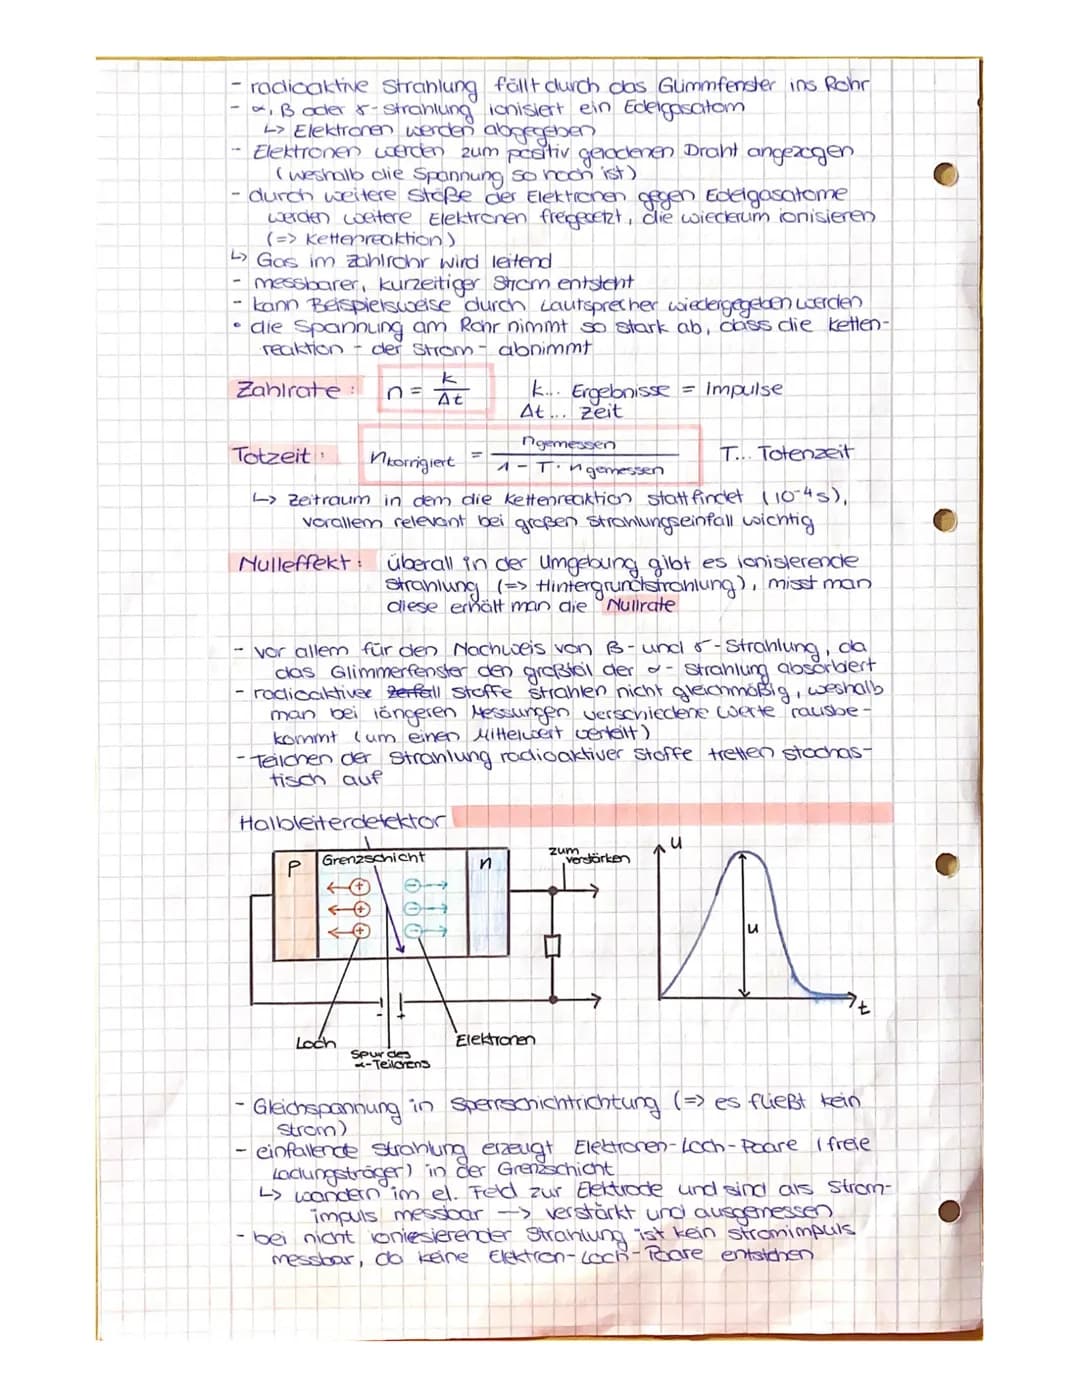 - radioaktive Strahlung fällt durch das Glimmfenster ins Rohr
- α, β oder γ-Strahlung ionisiert ein Edelgasatom
↳ Elektronen werden abgegeben
- Elektronen werden zum positiv geladenen Draht angezogen
(weshalb die Spannung so hoch ist)
- durch weitere Stöße der Elektronen gegen Edelgasatome
werden weitere Elektronen freigesetzt, die wiederum ionisieren
(=> Kettenreaktion)
↳ Gas im Zählrohr wird leitend
- messbarer, kurzeitiger Strom entsteht
- kann Beispielsweise durch Lautsprecher wiedergegeben werden
• die Spannung am Rohr nimmt so stark ab, dass die Ketten-
reaktion - der Strom - abnimmt
Zählrate: n = k/Δt k... Ergebnisse = Impulse
Δt... Zeit
Totzeit: nkorrigiert = ngemessen / 1 - T · ngemessen T... Totenzeit
↳ Zeitraum in dem die Kettenreaktion stattfindet (10⁻⁴s),
vorallem relevant bei großen Strahlungseinfall wichtig
Nulleffekt: überall in der Umgebung gibt es ionisierende
Strahlung (=> Hintergrundstrahlung), misst man
diese erhält man die Nullrate
- vor allem für den Nachweis von β- und γ-Strahlung, da
das Glimmerfenster den großteil der α-Strahlung absorbiert
- radioaktiver zerfall Stoffe strahlen nicht gleichmäßig, weshalb
man bei längeren Messungen verschiedene Werte rausbe-
kommt (um einen Mittelwert verteilt)
- Teilchen der Strahlung radioaktiver Stoffe tretten stochas-
tisch auf
Halbleiterdetektor
P Grenzschicht n
zum verstärken
U
U
t
+ -
+ -
+ -
- +
Loch
Elektronen
Spur des
α-Teilchens
- Gleichspannung in Sperrschichtrichtung (=> es fließt kein
Strom)
- einfallende Strahlung erzeugt Elektronen-Loch-Paare (freie
Ladungsträger) in der Grenzschicht
↳ wandern im el. Feld zur Elektrode und sind als Strom-
impuls messbar —> verstärkt und ausgemessen
- bei nicht ioniesierender Strahlung ist kein stromimpuls
messbar, da keine Elektron-Loch-Paare entstehen